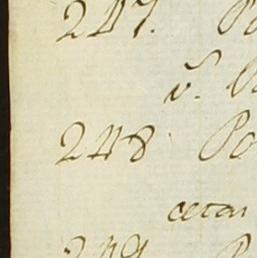 247. Po
v.
248 Po
cetar
249 P